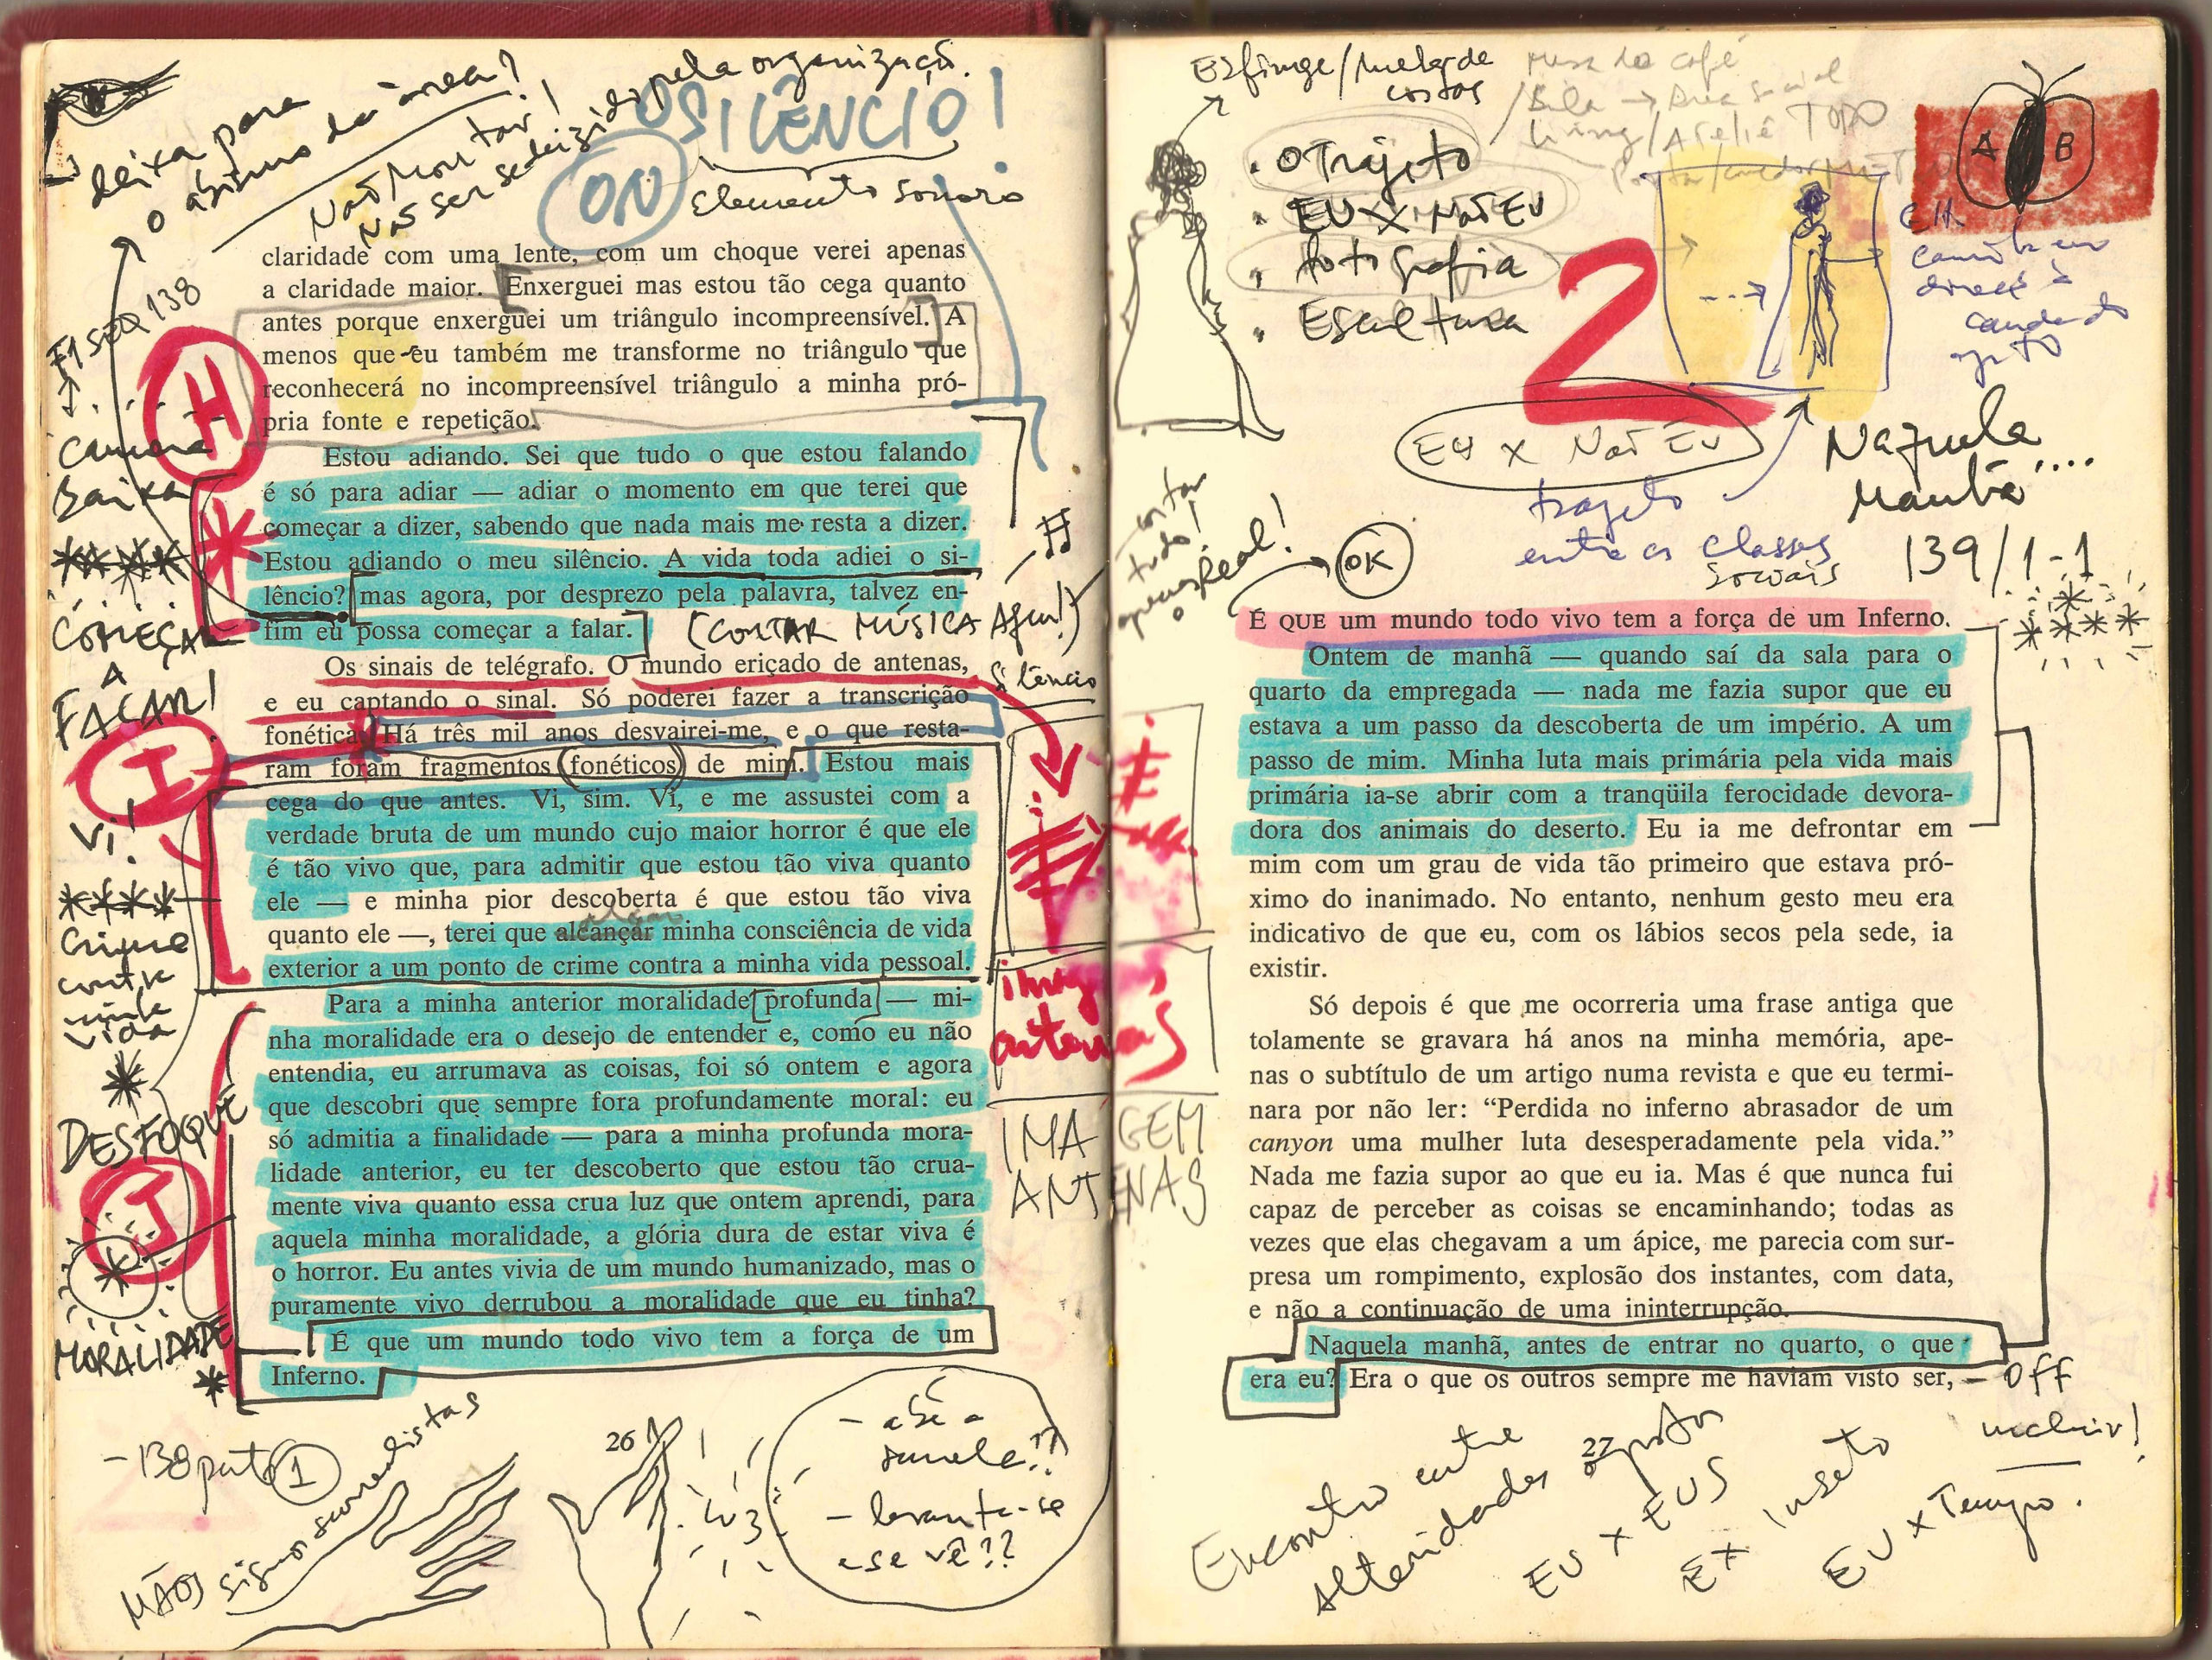 deixa para
o abismo da área?
Não montar!
Não ser seduzido pela organização.
O SILÊNCIO!
ON
elemento sonoro
claridade com uma lente, com um choque verei apenas
a claridade maior. Enxerguei mas estou tão cega quanto
antes porque enxerguei um triângulo incompreensível. A
menos que eu também me transforme no triângulo que
reconhecerá no incompreensível triângulo a minha pró-
pria fonte e repetição.
Estou adiando. Sei que tudo o que estou falando
é só para adiar — adiar o momento em que terei que
começar a dizer, sabendo que nada mais me resta a dizer.
Estou adiando o meu silêncio. A vida toda adiei o si-
lêncio? mas agora, por desprezo pela palavra, talvez en-
fim eu possa começar a falar.
(CORTAR MÚSICA AQUI!)
Os sinais de telégrafo. O mundo eriçado de antenas,
e eu captando o sinal. Só poderei fazer a transcrição
fonética. Há três mil anos desvairei-me, e o que resta-
ram foram fragmentos fonéticos de mim. Estou mais
cega do que antes. Vi, sim. Vi, e me assustei com a
verdade bruta de um mundo cujo maior horror é que ele
é tão vivo que, para admitir que estou tão viva quanto
ele — e minha pior descoberta é que estou tão viva
quanto ele —, terei que alcançar minha consciência de vida
exterior a um ponto de crime contra a minha vida pessoal.
Para a minha anterior moralidade profunda — mi-
nha moralidade era o desejo de entender e, como eu não
entendia, eu arrumava as coisas, foi só ontem e agora
que descobri que sempre fora profundamente moral: eu
só admitia a finalidade — para a minha profunda mora-
lidade anterior, eu ter descoberto que estou tão crua-
mente viva quanto essa crua luz que ontem aprendi, para
aquela minha moralidade, a glória dura de estar viva é
o horror. Eu antes vivia de um mundo humanizado, mas o
puramente vivo derrubou a moralidade que eu tinha?
É que um mundo todo vivo tem a força de um
Inferno.
F1 SEQ 138
H
câmera
Baixa
COMEÇAR
A
FALAR!
I
Vi!
crime
contra
minha
vida
DESFOQUE
J
MORALIDADE
silêncio
imagens
antenas
IMAGEM
ANTENAS
- 138 parte 1
MÃOS signos surrealistas
26
luz
- até a
janela??
- levanta-se
e se vê??
Esfinge/mulher de
costas
Mesa do café
Living/Ateliê TODO
. O Trajeto
. EU X NÃO EU
. fotografia
. Escultura
2
A B
EU X NÃO EU
trajeto
entre as classes
sociais
Naquela
Manhã....
139/1-1
cortar
tudo!
Real!
OK
É QUE um mundo todo vivo tem a força de um Inferno.
Ontem de manhã — quando saí da sala para o
quarto da empregada — nada me fazia supor que eu
estava a um passo da descoberta de um império. A um
passo de mim. Minha luta mais primária pela vida mais
primária ia-se abrir com a tranqüila ferocidade devora-
dora dos animais do deserto. Eu ia me defrontar em
mim com um grau de vida tão primeiro que estava pró-
ximo do inanimado. No entanto, nenhum gesto meu era
indicativo de que eu, com os lábios secos pela sede, ia
existir.
Só depois é que me ocorreria uma frase antiga que
tolamente se gravara há anos na minha memória, ape-
nas o subtítulo de um artigo numa revista e que eu termi-
nara por não ler: “Perdida no inferno abrasador de um
canyon uma mulher luta desesperadamente pela vida.”
Nada me fazia supor ao que eu ia. Mas é que nunca fui
capaz de perceber as coisas se encaminhando; todas as
vezes que elas chegavam a um ápice, me parecia com sur-
presa um rompimento, explosão dos instantes, com data,
e não a continuação de uma ininterrupção.
Naquela manhã, antes de entrar no quarto, o que
era eu? Era o que os outros sempre me haviam visto ser,
— off
incluir!
27
Encontro entre
Alteridades
EU X EUS
EX inseto
EU X Tempo.